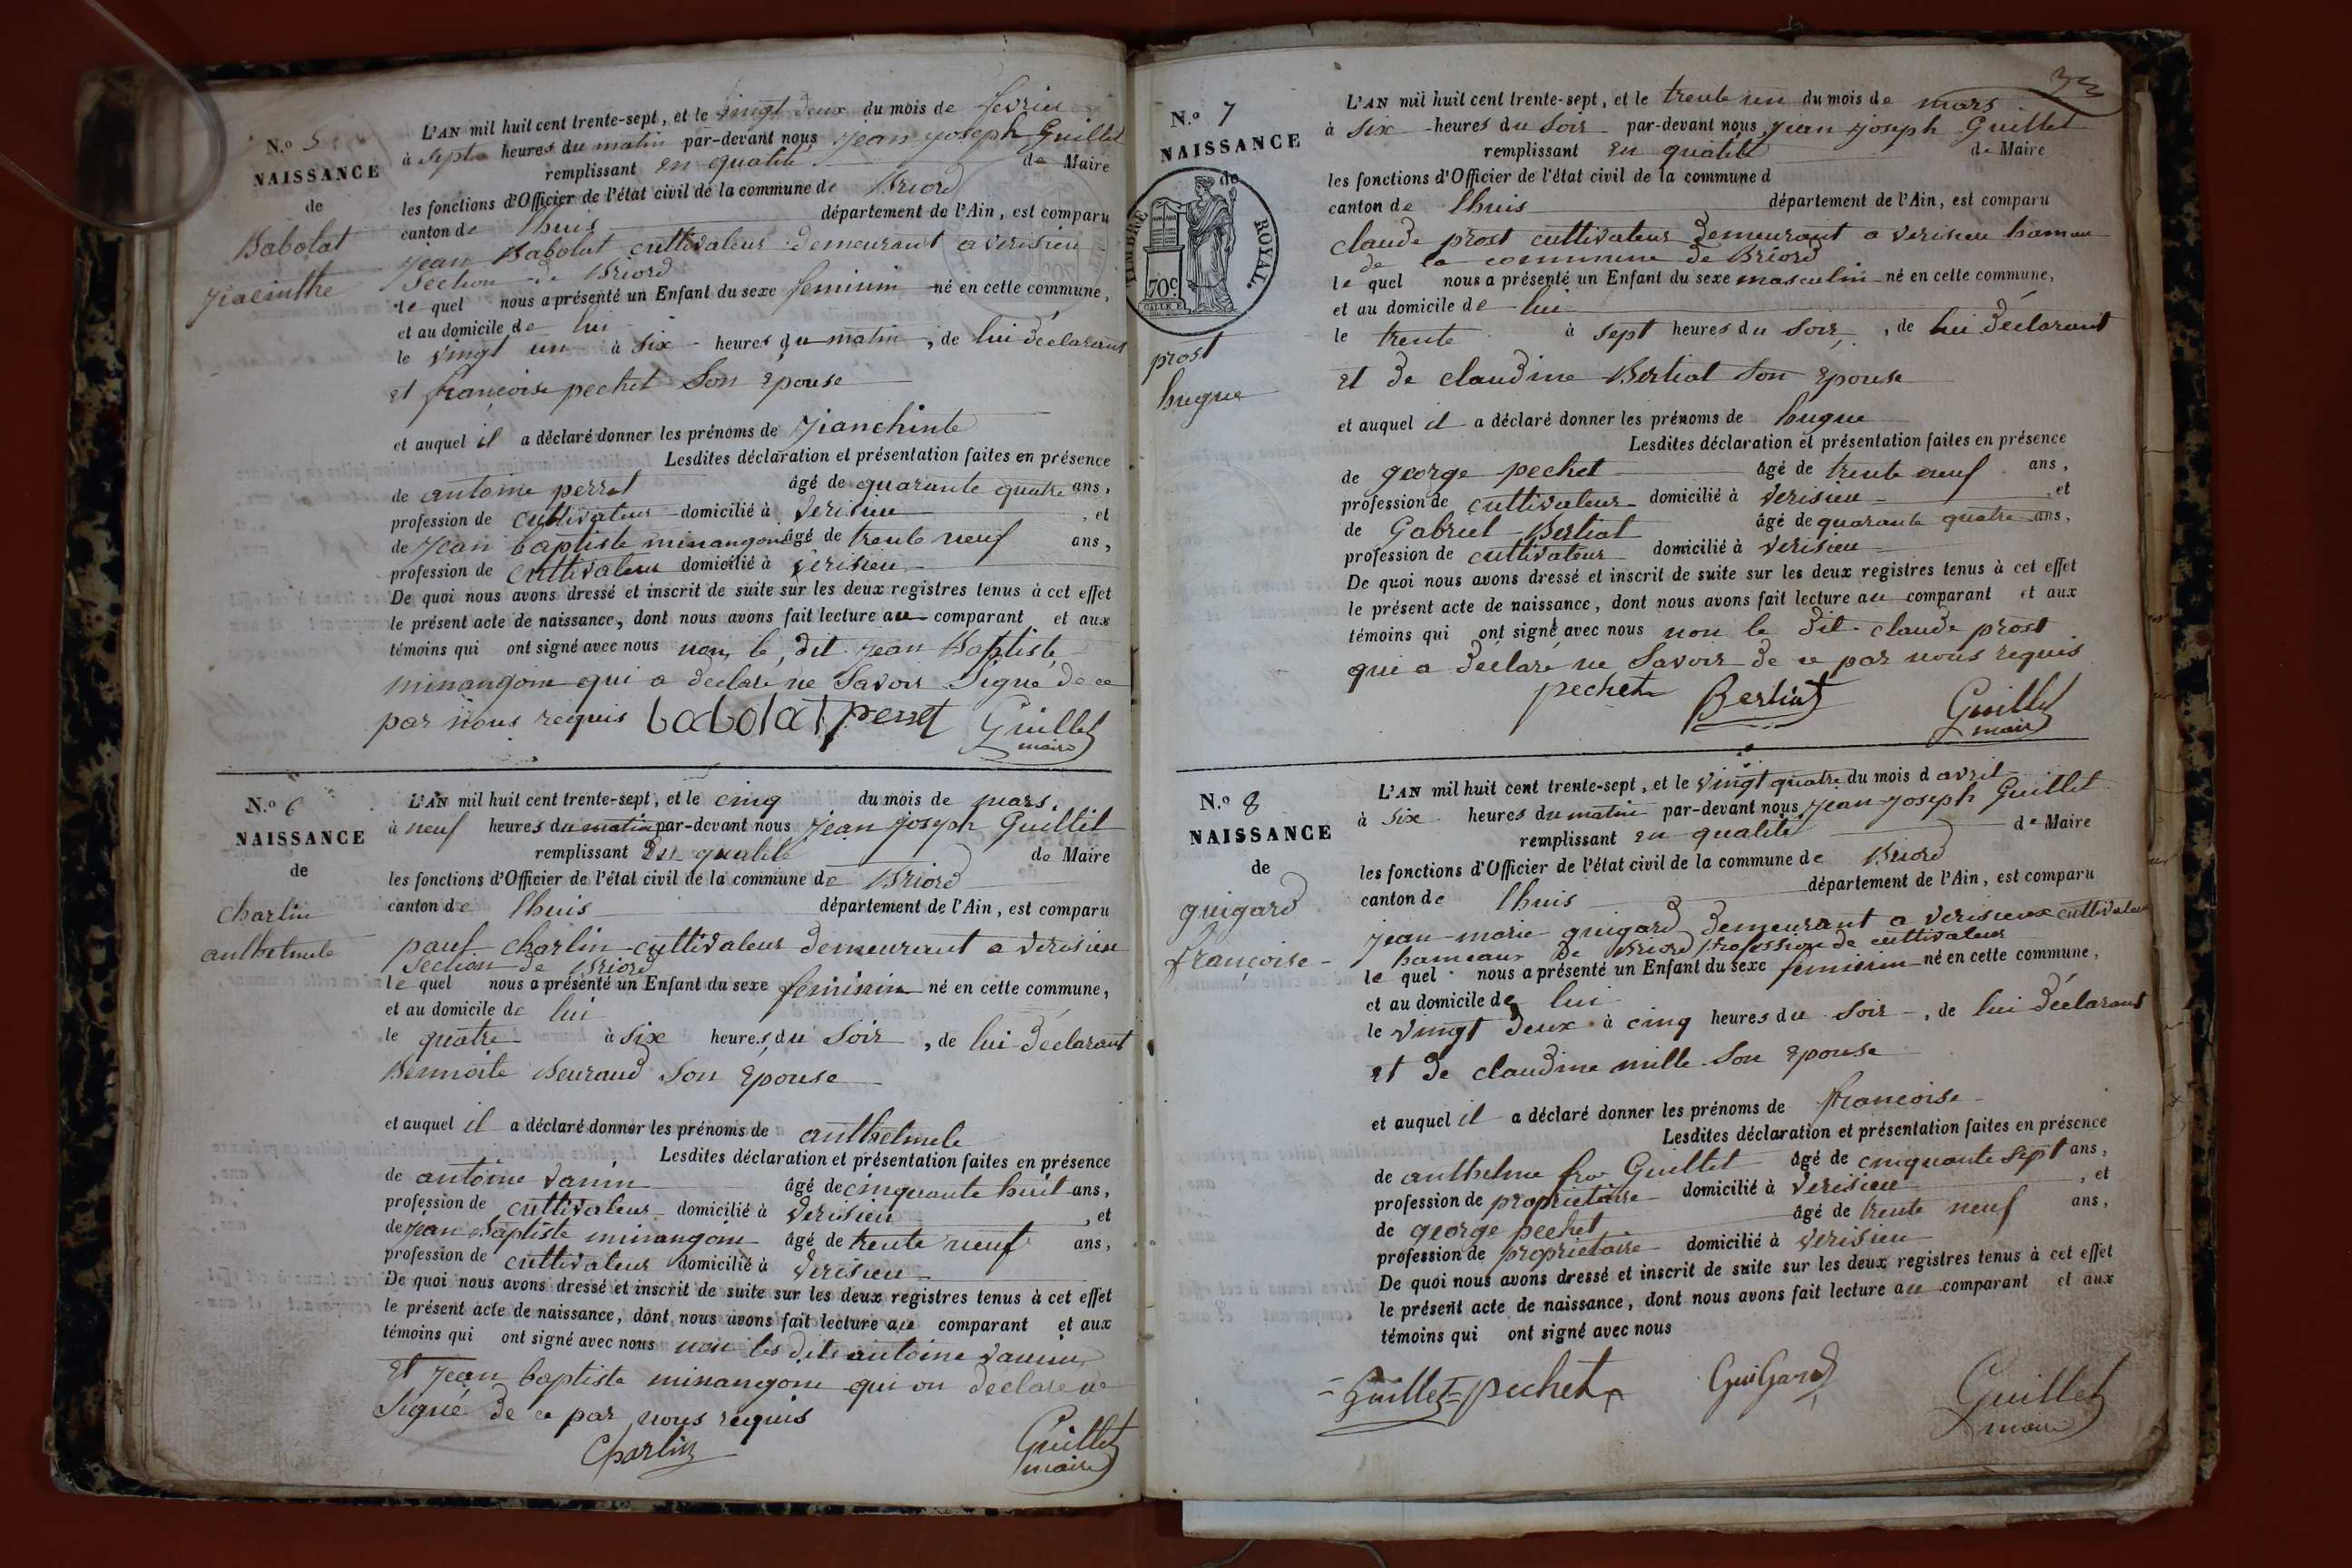 N.o 5
NAISSANCE
de
Babolat
Jiacinthe
L'AN mil huit cent trente-sept, et le vingt deux du mois de fevrier
à sept heures du matin par-devant nous Jean joseph Guillet
remplissant en qualité de Maire
les fonctions d'Officier de l'état civil de la commune de Briord
canton de lhuis département de l'Ain, est comparu
Jean Babolat cultivateur demeurant a verisieu
Section de Briord
le quel nous a présenté un Enfant du sexe feminin né en cette commune,
et au domicile de lui
le vingt un à six heures du matin, de lui déclarant
et françoise pechet Son épouse
et auquel il a déclaré donner les prénoms de Jianchinte
Lesdites déclaration et présentation faites en présence
de antoine perret âgé de quarante quatre ans,
profession de cultivateur domicilié à verisieu, et
de Jean baptiste minangoin âgé de trente neuf ans,
profession de cultivateur domicilié à verisieu
De quoi nous avons dressé et inscrit de suite sur les deux registres tenus à cet effet
le présent acte de naissance, dont nous avons fait lecture au comparant et aux
témoins qui ont signé avec nous non le dit Jean Baptiste
minangoin qui a declaré ne Savoir Signé de ce
par nous requis babolat perret Guillet
maire
N.o 6
NAISSANCE
de
Charlin
anthelmele
L'AN mil huit cent trente-sept, et le cinq du mois de mars
à neuf heures du matin par-devant nous Jean joseph Guillet
remplissant En qualité de Maire
les fonctions d'Officier de l'état civil de la commune de Briord
canton de lhuis département de l'Ain, est comparu
paul charlin cultivateur demeurant a verisieu
Section de Briord
le quel nous a présenté un Enfant du sexe feminin né en cette commune,
et au domicile de lui
le quatre à six heures du Soir, de lui déclarant
Bennoite Beuraud Son épouse
et auquel il a déclaré donner les prénoms de anthelmele
Lesdites déclaration et présentation faites en présence
de antoine vanin âgé de cinquante huit ans,
profession de cultivateur domicilié à verisieu, et
de Jean Baptiste minangoin âgé de trente neuf ans,
profession de cultivateur domicilié à verisieu
De quoi nous avons dressé et inscrit de suite sur les deux registres tenus à cet effet
le présent acte de naissance, dont nous avons fait lecture au comparant et aux
témoins qui ont signé avec nous non les dits antoine vanin
Et Jean baptiste minangoin qui on declare ne
Signé de ce par nous requis
Charlin Guillet
maire
33
N.o 7
NAISSANCE
de
TIMBRE ROYAL
70c
prost
hugue
L'AN mil huit cent trente-sept, et le trente un du mois de mars
à Six heures du Soir par-devant nous Jean joseph Guillet
remplissant En qualité de Maire
les fonctions d'Officier de l'état civil de la commune d
canton de lhuis département de l'Ain, est comparu
claude prost cultivateur demeurant a verisieu hamau
de la commune de Briord
le quel nous a présenté un Enfant du sexe masculin né en cette commune,
et au domicile de lui
le trente à sept heures du Soir, de lui déclarant
et de claudine Bertiat Son épouse
et auquel il a déclaré donner les prénoms de hugue
Lesdites déclaration et présentation faites en présence
de george pechet âgé de trente neuf ans,
profession de cultivateur domicilié à verisieu, et
de Gabriel Bertiat âgé de quarante quatre ans,
profession de cultivateur domicilié à verisieu
De quoi nous avons dressé et inscrit de suite sur les deux registres tenus à cet effet
le présent acte de naissance, dont nous avons fait lecture au comparant et aux
témoins qui ont signé avec nous non le dit claude prost
qui a déclaré ne Savoir de ce par nous requis
pechet Bertiat Guillet
maire
N.o 8
NAISSANCE
de
guigard
françoise
L'AN mil huit cent trente-sept, et le vingt quatre du mois d avril
à Six heures du matin par-devant nous Jean joseph Guillet
remplissant en qualité de Maire
les fonctions d'Officier de l'état civil de la commune de Briord
canton de lhuis département de l'Ain, est comparu
Jean marie guigard demeurant a verisieux cultivateur
hameaux De Briord profession de cultivateur
le quel nous a présenté un Enfant du sexe feminin né en cette commune,
et au domicile de lui
le vingt deux à cinq heures du Soir, de lui déclarant
et de claudine mille Son épouse
et auquel il a déclaré donner les prénoms de francoise
Lesdites déclaration et présentation faites en présence
de anthelme Guillet âgé de cinquante sept ans,
profession de proprietaire domicilié à verisieu, et
de george pechet âgé de trente neuf ans,
profession de proprietaire domicilié à verisieu
De quoi nous avons dressé et inscrit de suite sur les deux registres tenus à cet effet
le présent acte de naissance, dont nous avons fait lecture au comparant et aux
témoins qui ont signé avec nous
Guillet pechet GuiGard Guillet
maire